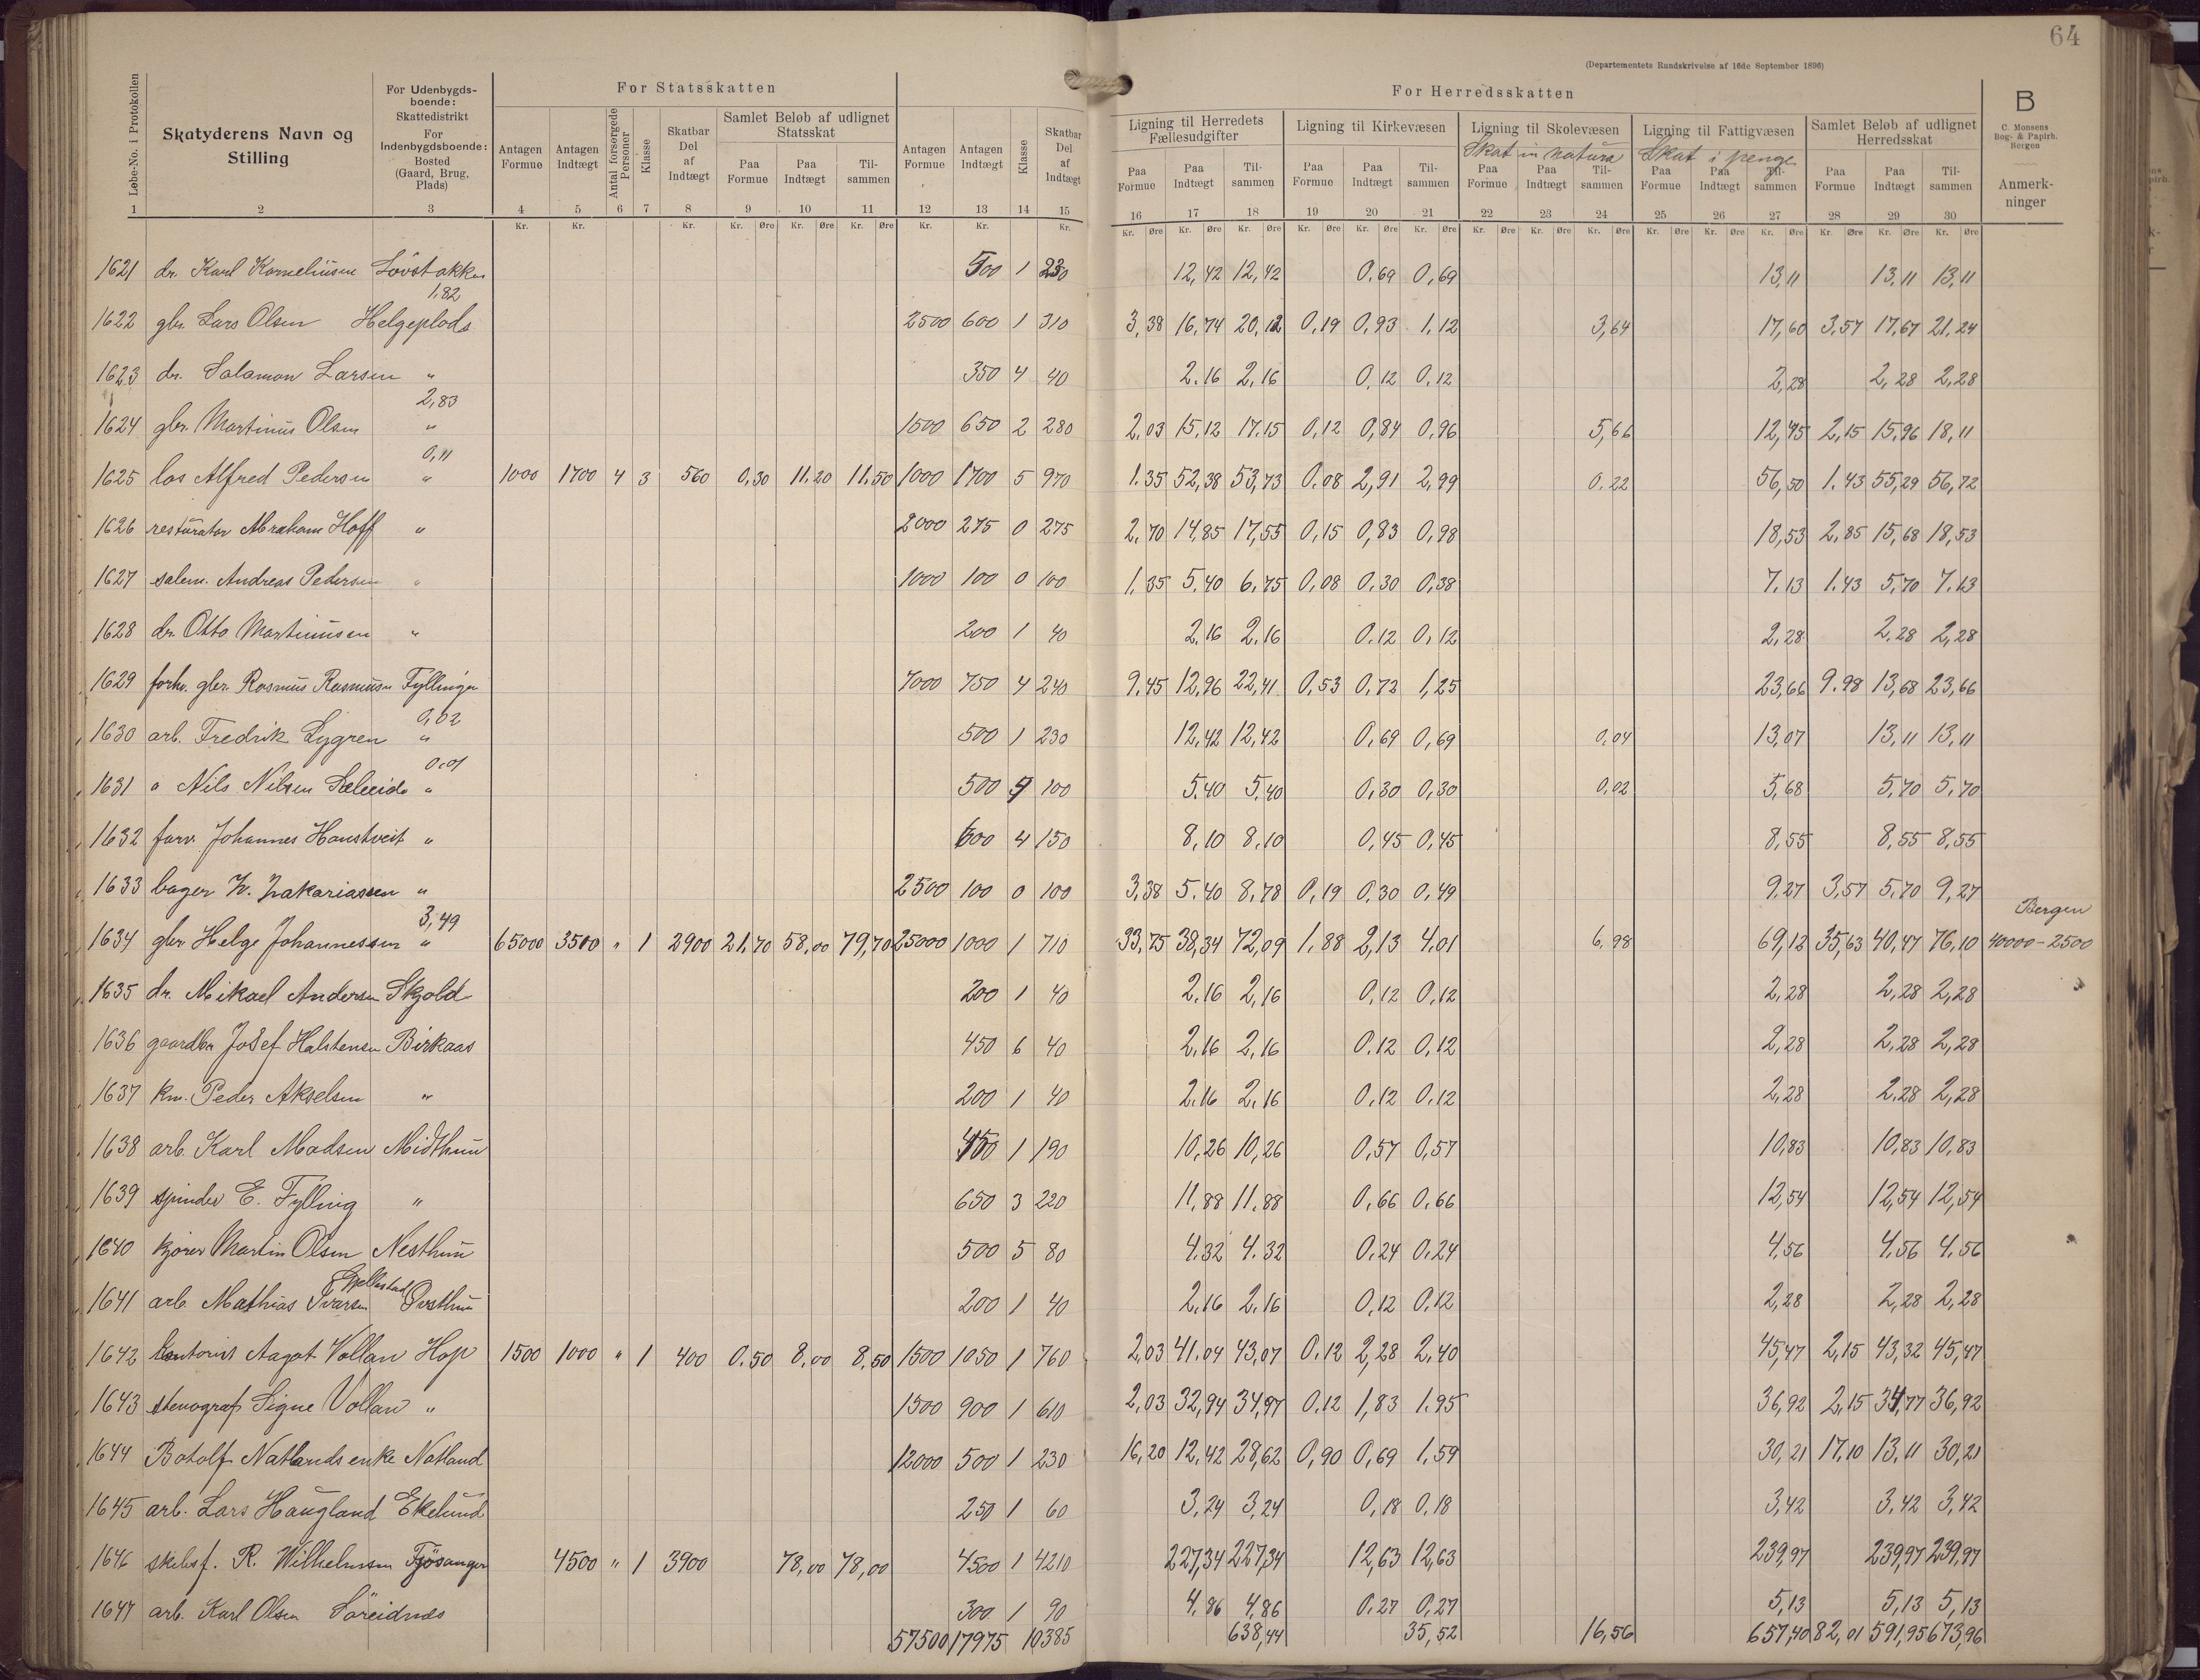 64
(Departementets Rundskrivelse af 16de September 1896)
For Statsskatten
For Herredsskatten
B
C. Monsens Bog- & Papirh. Bergen
Løbe-No. i Protokollen | Skatyderens Navn og Stilling | For Udenbygdsboende: Skattedistrikt For Indenbygdsboende: Bosted (Gaard, Brug, Plads) | Antagen Formue | Antagen Indtægt | Antal forsørgede Personer | Klasse | Skatbar Del af Indtægt | Samlet Beløb af udlignet Statsskat | Antagen Formue | Antagen Indtægt | Klasse | Skatbar Del af Indtægt | Ligning til Herredets Fællesudgifter | Ligning til Kirkevæsen | Ligning til Skolevæsen | Ligning til Fattigvæsen | Samlet Beløb af udlignet Herredsskat | Anmerkninger
Skat in natura | Skat i penge
Paa Formue | Paa Indtægt | Tilsammen | Paa Formue | Paa Indtægt | Tilsammen | Paa Formue | Paa Indtægt | Tilsammen | Paa Formue | Paa Indtægt | Tilsammen | Paa Formue | Paa Indtægt | Tilsammen | Paa Formue | Paa Indtægt | Tilsammen
1 2 3 4 5 6 7 8 9 10 11 12 13 14 15 16 17 18 19 20 21 22 23 24 25 26 27 28 29 30
Kr. Kr. Kr. Kr. Øre Kr. Øre Kr. Øre Kr. Kr. Kr. Kr. Øre Kr. Øre Kr. Øre Kr. Øre Kr. Øre Kr. Øre Kr. Øre Kr. Øre Kr. Øre Kr. Øre Kr. Øre Kr. Øre Kr. Øre Kr. Øre Kr. Øre
1621 dr. Karl Korneliusen Lövstakken 500 1 230 12,42 12,42 0,69 0,69 13,11 13,11 13,11
1,82
1622 gbr. Lars Olsen Helgeplads 2500 600 1 310 3,38 16,74 20,12 0,19 0,93 1,12 3,64 17,60 3,57 17,67 21,24
1623 dr. Salamon Larsen " 350 4 40 2.16 2,16 0,12 0,12 2,28 2,28 2,28
2,83
1624 gbr. Martinus Olsen " 1500 650 2 280 2,03 15,12 17.15 0,12 0,84 0,96 5,66 12,45 2,15 15,96 18,11
0,11
1625 los Alfred Pedersen " 1000 1700 4 3 560 0,30 11,20 11,50 1000 1700 5 970 1.35 52,38 53,73 0.08 2,91 2,99 0.22 56,50 1.43 55,29 56,72
1626 resturatør Abraham Hoff " 2000 275 0 275 2,70 14,85 17,55 0,15 0,83 0,98 18,53 2,85 15,68 18,53
1627 salem. Andreas Pedersen " 1000 100 0 100 1,35 5,40 6,75 0,08 0,30 0,38 7.13 1.43 5,70 7.13
1628 dr. Otto Martinusen " 200 1 40 2,16 2,16 0.12 0,12 2,28 2,28 2,28
1629 forhv. gbr. Rasmus Rasmusen Fyllingen 7000 750 4 240 9,45 12,96 22,41 0,53 0,72 1,25 23,66 9.98 13,68 23,66
0,02
1630 arb. Fredrik Lygren " 500 1 230 12,42 12,42 0,69 0,69 0,04 13,07 13,11 13,11
0,01
1631 " Nils Nilsen " 500 5 100 5.40 5,40 0,30 0,30 0,02 5,68 5,70 5,70
1632 farv. Johannes Haustveit " 600 4 150 8,10 8,10 0,45 0,45 8,55 8,55 8,55
1633 bager W. Zakariassen " 2500 100 0 100 3,38 5.40 8,78 0,19 0,30 0,49 9,27 3,57 5,70 9,27
3,49 Bergen
1634 gbr Helge Johannessen " 65000 3500 " 1 2900 21,70 58,00 79,70 25000 1000 1 710 33,75 38,34 72,09 1,88 2,13 4.01 6,98 69,12 35,63 40,47 76,10 40000-2500
1635 dr. Mikael Andersen Skjold 200 1 40 2,16 2,16 0,12 0,12 2,28 2,28 2,28
1636 gaardbr Josef Halstensen Birkaas 450 6 40 2,16 2,16 0.12 0,12 2,28 2,28 2,28
1637 km. Peder Akselsen " 200 1 40 2.16 2,16 0,12 0,12 2,28 2,28 2,28
1638 arb. Karl Madsen Midthun 450 1 190 10,26 10,26 0,57 0,57 10,83 10,83 10,83
1639 spinder E. Fylling " 650 3 220 11,88 11.88 0,66 0,66 12,54 12,54 12,54
1640 kjører Martin Olsen Nesthun 500 5 80 4.32 4.32 0,24 0,24 4,56 4,56 4,56
Gjellestad
1641 arb. Mathias Ivarsen Øvsthun 200 1 40 2,16 2,16 0,12 0,12 2,28 2,28 2,28
1642 kontorist Aagot Vollan Hop 1500 1000 " 1 400 0.50 8,00 8,50 1500 1050 1 760 2,03 41.04 43,07 0,12 2,28 2,40 45,47 2,15 43,32 45,47
1643 stenograf Signe Vollan " 1500 900 1 610 2,03 32,94 34,97 0.12 1,83 1.95 36,92 2,15 34,77 36,92
1644 Botolf Natlands enke Natland 12000 500 1 230 16,20 12,42 28,62 0,90 0,69 1,59 30,21 17,10 13,11 30,21
1645 arb. Lars Haugland Ekelund 250 1 60 3,24 3,24 0,18 0,18 3,42 3,42 3,42
1646 skibsf. R. Wilhelmsen Fjösanger 4500 " 1 3900 78,00 78,00 4500 1 4210 227,34 227,34 12,63 12,63 239,97 239,97 239,97
1647 arb. Karl Olsen Söreidnes 300 1 90 4,86 4,86 0.27 0,27 5,13 5,13 5,13
57500 17975 10385 638,44 35,52 16,56 657,40 82,01 591,95 673,96